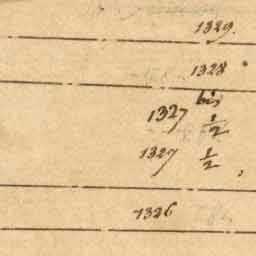 1329.
1328
1327 bis 1/2
1327 1/2
1326